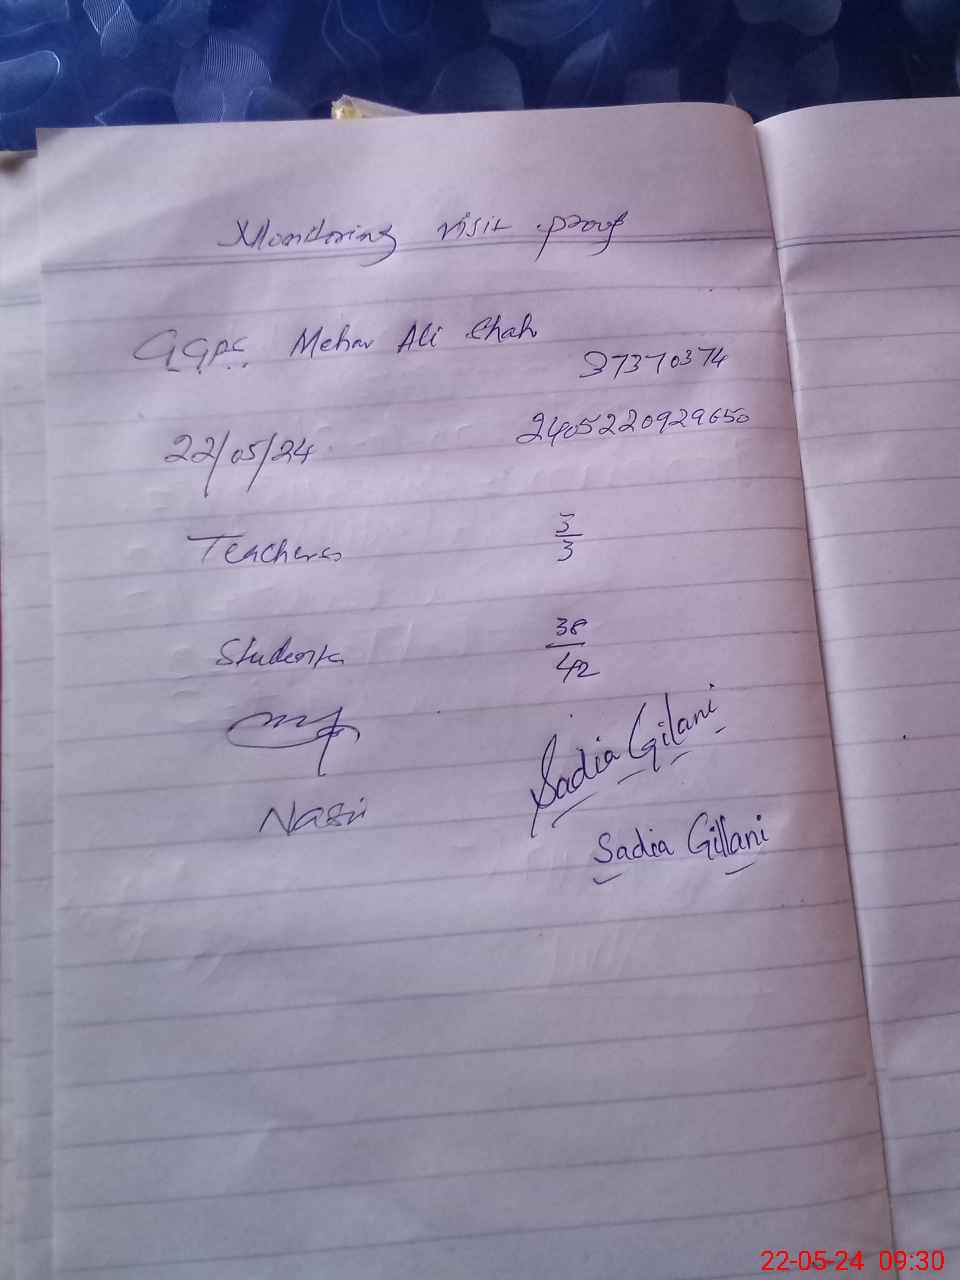 Monitoring visit proof
GGPS Mehar Ali Chah
37370374
22/05/24 2405220929650
Teachers 3/3
Students 38/42
Sadia Gilani
Nasir
Sadia Gillani
22-05-24 09:30